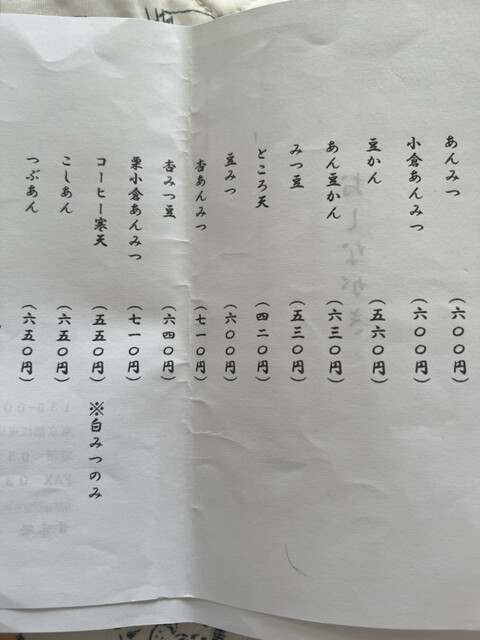 あんみつ（六〇〇円）
小倉あんみつ（六〇〇円）
豆かん（五六〇円）
あん豆かん（六三〇円）
みつ豆（五三〇円）
ところ天（四二〇円）
豆みつ（六〇〇円）
杏あんみつ（七一〇円）
杏みつ豆（六四〇円）
栗小倉あんみつ（七一〇円）
コーヒー寒天（五五〇円）※白みつのみ
こしあん（六五〇円）
つぶあん（六五〇円）
おしながき